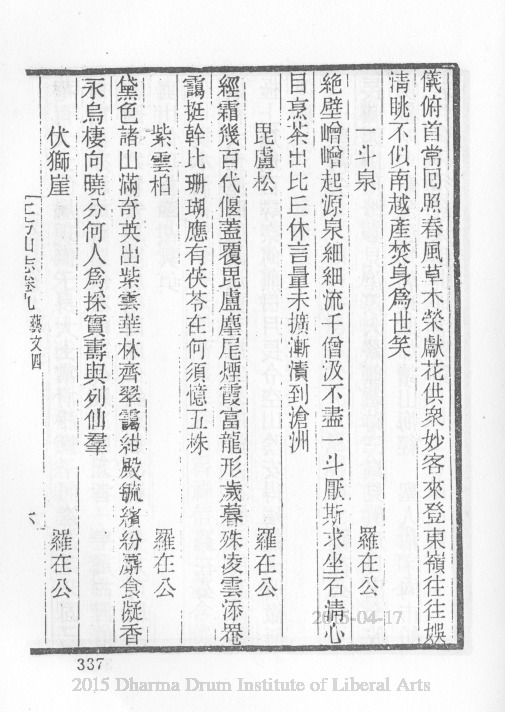 儀俯首常回照春風草木榮獻花供衆妙客來登東嶺往往娛
清眺不似南越產焚身爲世笑
一斗泉　羅在公
絶壁嶒嶒起源泉細細流千僧汲不盡一斗厭斯求坐石清心
目烹茶出比丘休言量未擴漸漬到滄洲
毘盧松　羅在公
經霜幾百代偃蓋覆毘盧麈尾煙霞富龍形歲暮殊凌雲添罨
靄挺幹比珊瑚應有茯苓在何須憶五株
紫雲柏　羅在公
黛色諸山滿奇英出紫雲華林齊翠靄紺殿毓繽紛麝食凝香
永烏棲向曉分何人爲採實壽與列仙羣
伏獅崖　羅在公
上方山志卷九 藝文四　六
337
2015-04-17
2015 Dharma Drum Institute of Liberal Arts